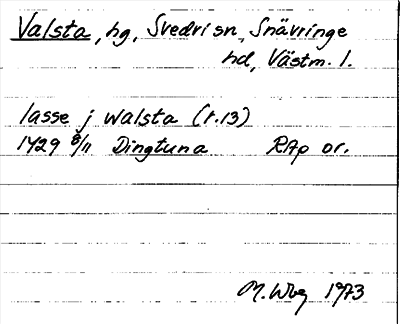 Valsta, hg, Svedvi sn, Snävringe
hd, Västm. l.
lasse j walsta (r.13)
1429 8/11 Dingtuna RAp or.
M. Wbg 1973